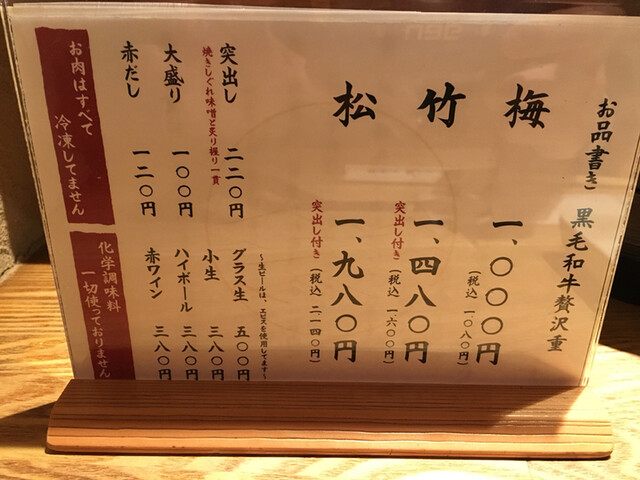 お品書き 黒毛和牛贅沢重
梅 一、〇〇〇円
(税込 一〇八〇円)
竹 一、四八〇円
突出し付き (税込 一六〇〇円)
松 一、九八〇円
突出し付き (税込 二一四〇円)
突出し 二二〇円
焼きしぐれ味噌と炙り握り一貫
大盛り 一〇〇円
赤だし 一二〇円
~生ビールは、エビスを使用してます~
グラス生 五〇〇円
小生 三八〇円
ハイボール 三八〇円
赤ワイン 三八〇円
お肉はすべて
冷凍してません
化学調味料
一切使っておりません